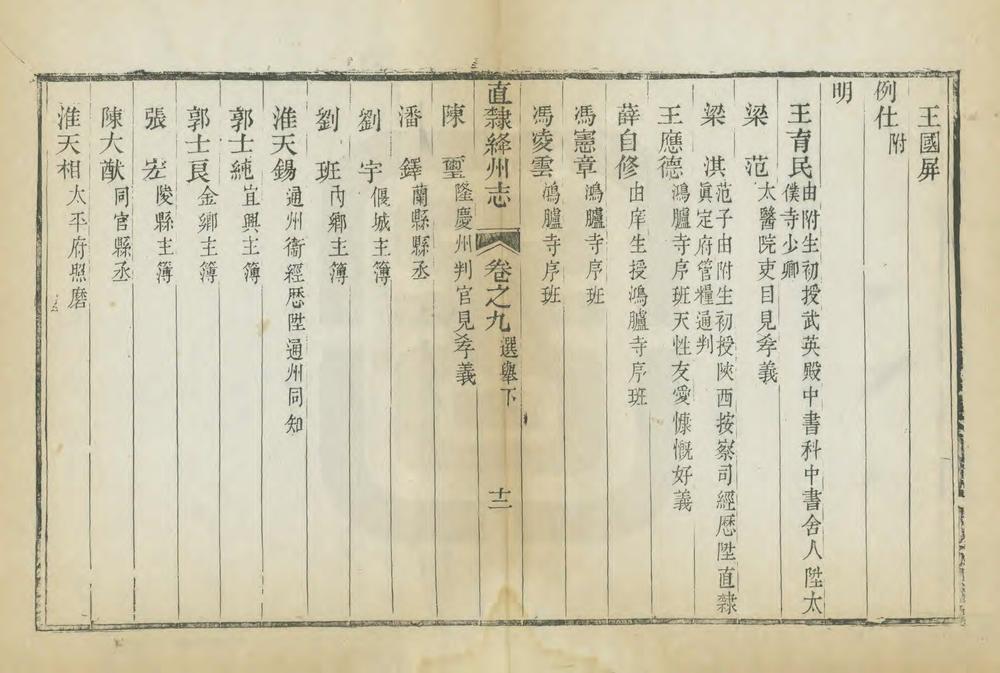 王國屏
例仕附
明
王育民由附生初授武英殿中書科中書舍人陞太
僕寺少卿
梁范太醫院吏目見孝義
梁淇范子由附生初授陝西按察司經歷陞直隸
真定府管糧通判
王應德鴻臚寺序班天性友愛慷慨好義
薛自修由庠生授鴻臚寺序班
馮憲章鴻臚寺序班
馮凌雲鴻臚寺序班
直隸絳州志 卷之九選舉下 十二
陳璽隆慶州判官見孝義
潘鐸蘭縣縣丞
劉宇偃城主簿
劉班內鄉主簿
淮天錫通州衞經歷陞通州同知
郭士純宜興主簿
郭士良金鄉主簿
張宏陵縣主簿
陳大猷同官縣丞
淮天相太平府照磨